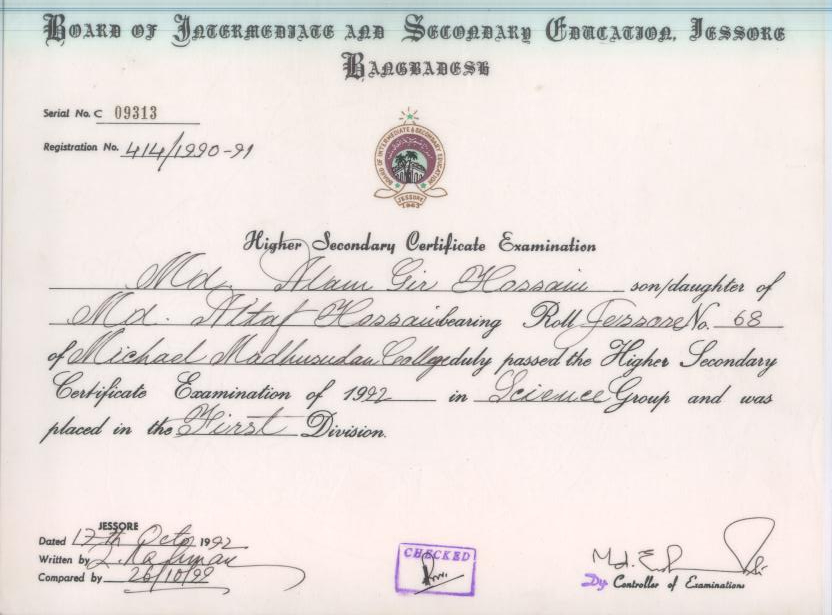 BOARD OF INTERMEDIATE AND SECONDARY EDUCATION, JESSORE
BANGBADESH
Serial No. C 09313
Registration No. 414/1990-91
BOARD OF INTERMEDIATE & SECONDARY EDUCATION
JESSORE
1963
Higher Secondary Certificate Examination
Md. Alam Gir Hossain son/daughter of
Md. Altaf Hossain bearing Roll Jessore No. 68
of Michael Madhusudan College duly passed the Higher Secondary
Certificate Examination of 1992 in Science Group and was
placed in the First Division.
JESSORE
Dated 17th Octo 1992
Written by Rahman
Compared by 26/10/92
CHECKED
Md.
Dy. Controller of Examinations